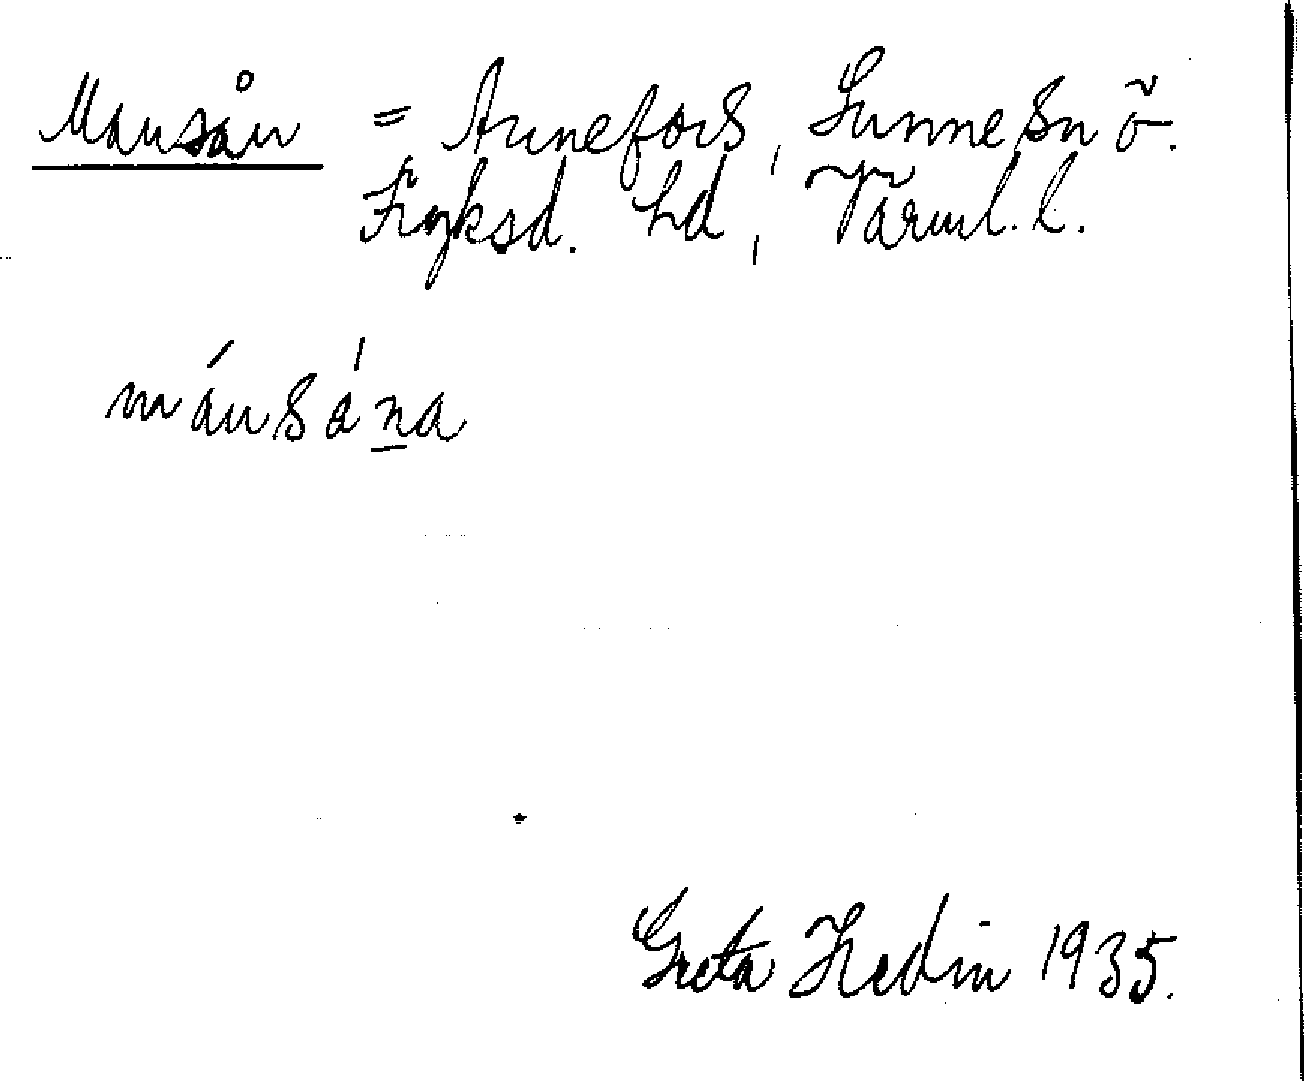 Mansån = Annefors, Sunne sn ö.
Fryksd. hd, Värml. l.
mánsána
Greta Hedin 1935.